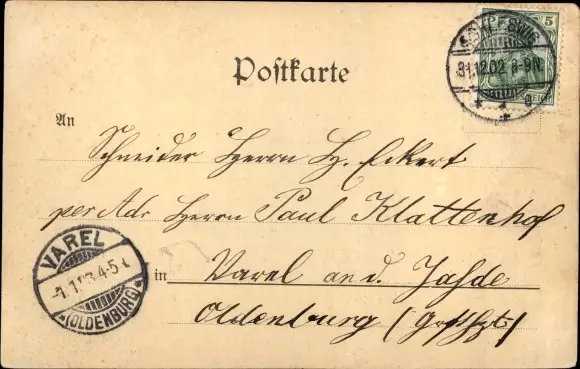 SCHLESWIG
31.12.02. 8-9N.
* 1 * g
5
REICH
Postkarte
An
Schneider Herrn H. Eckert
per Adr Herrn Paul Klattenhof
in Varel an d. Jahde
Oldenburg (Großhzt.)
VAREL
-1.1.03.4-5
*(OLDENBURG)*